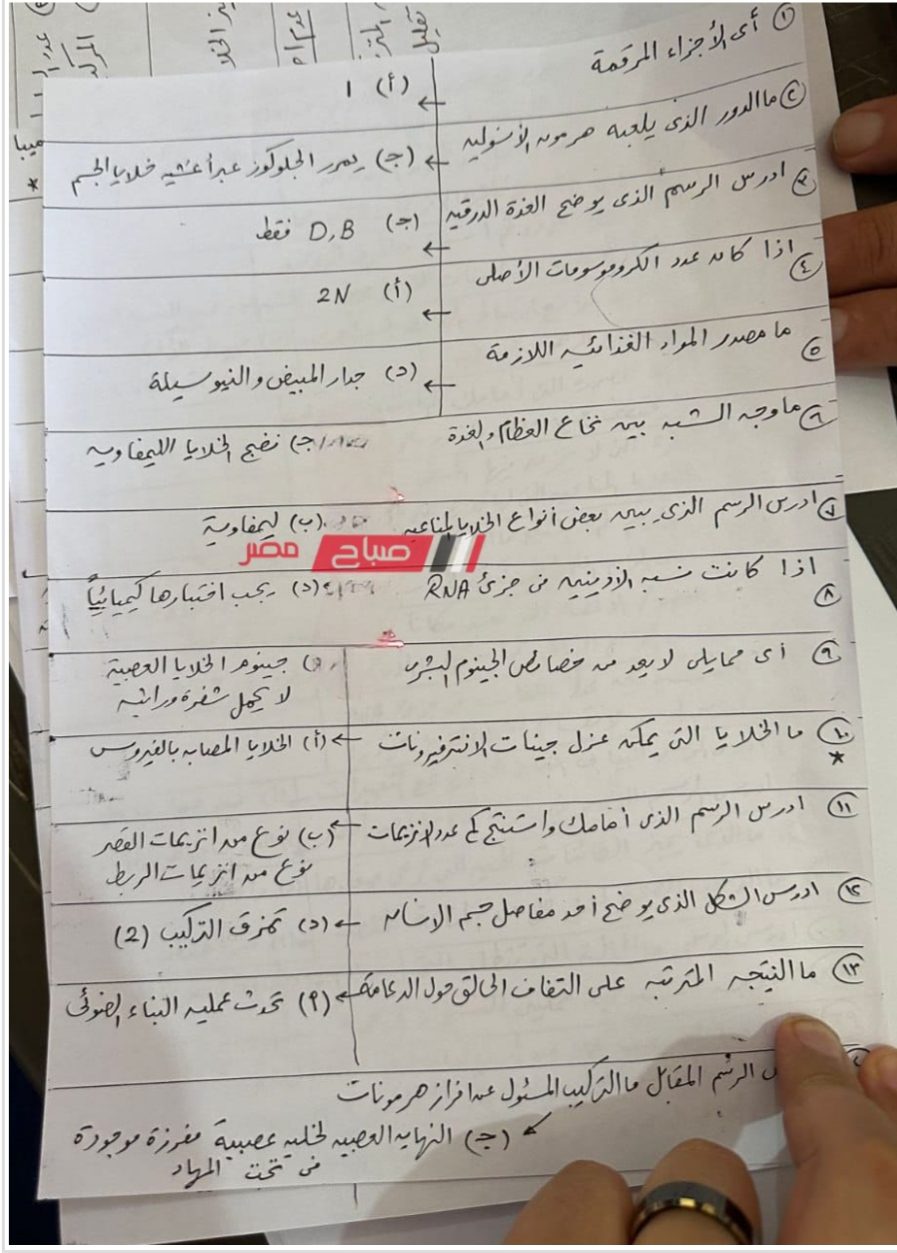 ① أى الأجزاء المرقمة
← (أ) 1
② ما الدور الذى يلعبه هرمون الأنسولين
← (ج) يمرر الجلوكوز عبر أغشيه خلايا الجسم
③ ادرس الرسم الذى يوضح الغدة الدرقيه
← (ج) D,B فقط
④ اذا كان عدد الكروموسومات الأصلى
← (أ) 2N
⑤ ما مصدر المواد الغذائيه اللازمة
← (د) جدار المبيض والنيوسيلة
⑥ ما وجه الشبه بين نخاع العظام والغدة
(ج) نضج الخلايا الليمفاويه
⑦ ادرس الرسم الذى يبين بعض أنواع الخلايا المناعيه
(ب) ليمفاوية
صباح مصر
⑧ اذا كانت نسبه الادينين فى جزئ RNA
(د) يجب اختبارها كيميائياً
⑨ أى مما يلى لا يعد من خصائص الجينوم البشرى
(د) جينوم الخلايا العصبية
لا يحمل شفرة وراثيه
⑩ ما الخلايا التى يمكن عزل جينات الانترفيرونات
*
← (أ) الخلايا المصابه بالفيروس
⑪ ادرس الرسم الذى أمامك واستنتج كم عدد الانزيمات
← (ب) نوع من انزيمات القصر
نوع من انزيمات الربط
⑫ ادرس الشكل الذى يوضح أحد مفاصل جسم الانسان
← (د) تمزق التركيب (2)
⑬ ما النتيجه المترتبه على التفاف الحالق حول الدعامة
← (أ) تحدث عمليه البناء الضوئى
الرسم المقابل ما التركيب المسئول عن افراز هرمونات
← (ج) النهايه العصبيه لخليه عصبيية مفرزة موجودة
فى تحت المهاد